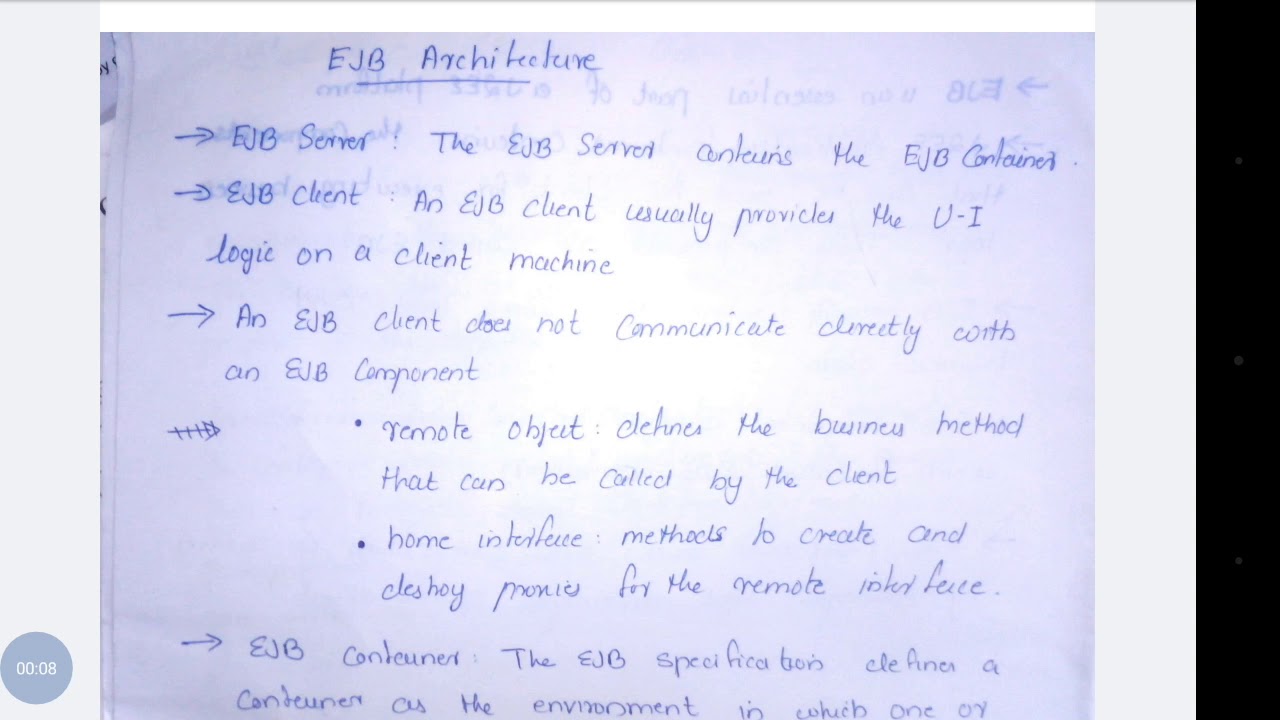 EJB Architecture
→ EJB Server : The EJB Server contains the EJB Container.
→ EJB Client : An EJB client usually provides the U-I
logic on a client machine
→ An EJB client does not communicate directly with
an EJB Component
• remote object : defines the business method
that can be called by the client
• home interface : methods to create and
destroy proxies for the remote interface.
→ EJB Container : The EJB specification defines a
Container as the environment in which one or
00:08